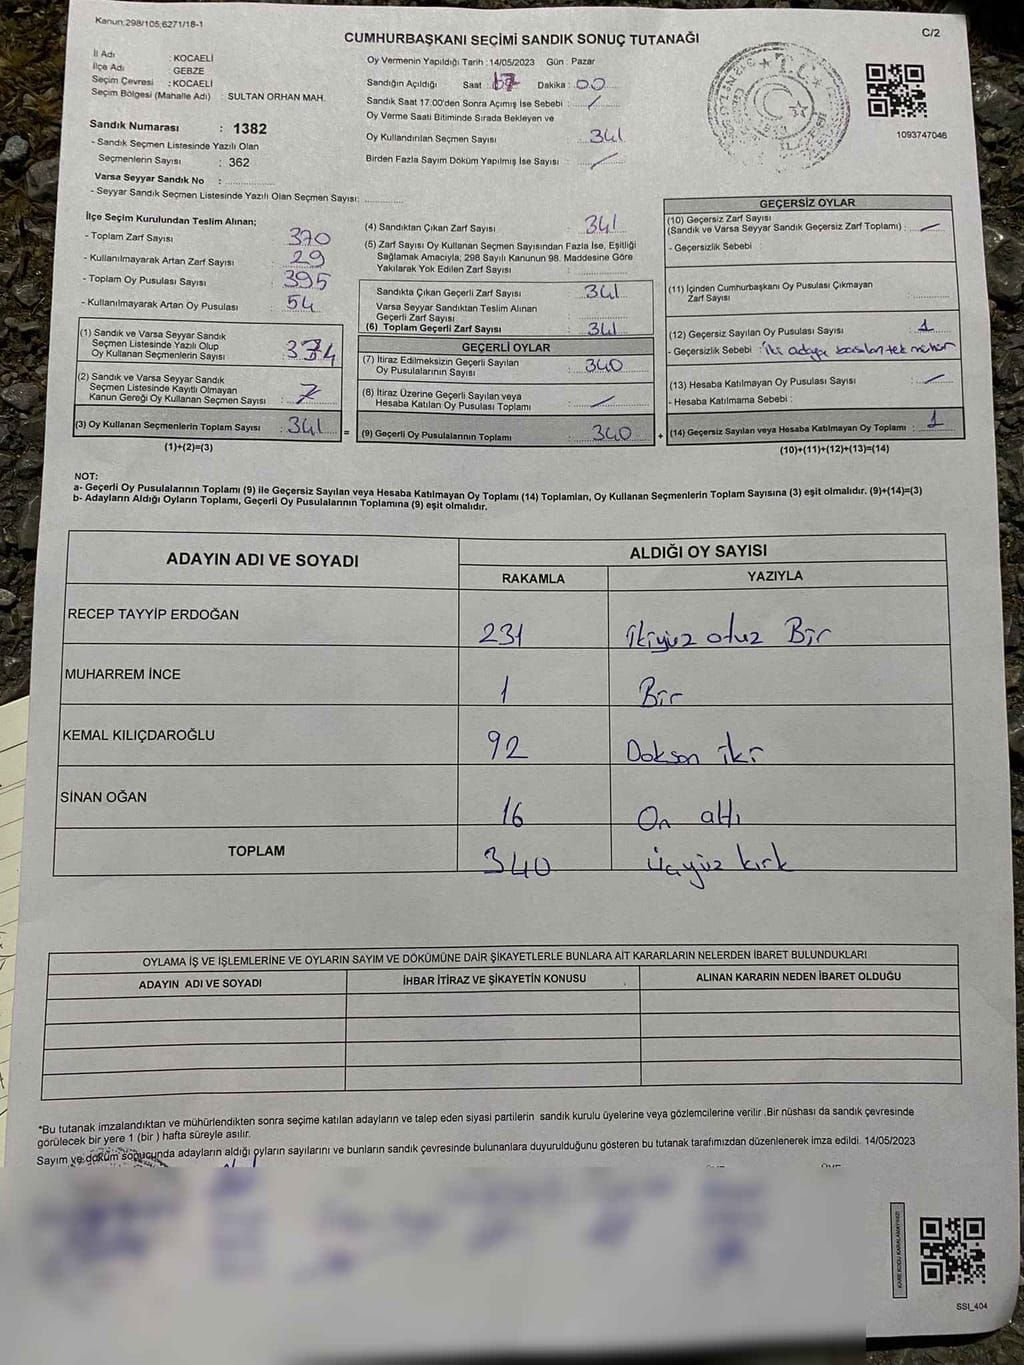 Kanun:298/105;6271/18-1
C/2
CUMHURBAŞKANI SEÇİMİ SANDIK SONUÇ TUTANAĞI
İl Adı : KOCAELİ
İlçe Adı : GEBZE
Seçim Çevresi : KOCAELİ
Seçim Bölgesi (Mahalle Adı) : SULTAN ORHAN MAH.
Sandık Numarası : 1382
- Sandık Seçmen Listesinde Yazılı Olan
Seçmenlerin Sayısı : 362
Varsa Seyyar Sandık No :
- Seyyar Sandık Seçmen Listesinde Yazılı Olan Seçmen Sayısı:
Oy Vermenin Yapıldığı Tarih : 14/05/2023 Gün : Pazar
Sandığın Açıldığı Saat : 17 Dakika : 00
Sandık Saat 17:00'den Sonra Açımış İse Sebebi : /
Oy Verme Saati Bitiminde Sırada Bekleyen ve
Oy Kullandırılan Seçmen Sayısı : 341
Birden Fazla Sayım Döküm Yapılmış İse Sayısı : /
T.C.
1093747046
İlçe Seçim Kurulundan Teslim Alınan;
- Toplam Zarf Sayısı : 370
- Kullanılmayarak Artan Zarf Sayısı : 29
- Toplam Oy Pusulası Sayısı : 395
- Kullanılmayarak Artan Oy Pusulası : 54
(1) Sandık ve Varsa Seyyar Sandık
Seçmen Listesinde Yazılı Olup
Oy Kullanan Seçmenlerin Sayısı : 334
(2) Sandık ve Varsa Seyyar Sandık
Seçmen Listesinde Kayıtlı Olmayan
Kanun Gereği Oy Kullanan Seçmen Sayısı : 7
(3) Oy Kullanan Seçmenlerin Toplam Sayısı : 341 =
(1)+(2)=(3)
(4) Sandıktan Çıkan Zarf Sayısı : 341
(5) Zarf Sayısı Oy Kullanan Seçmen Sayısından Fazla İse, Eşitliği
Sağlamak Amacıyla; 298 Sayılı Kanunun 98. Maddesine Göre
Yakılarak Yok Edilen Zarf Sayısı :
Sandıkta Çıkan Geçerli Zarf Sayısı : 341
Varsa Seyyar Sandıktan Teslim Alınan
Geçerli Zarf Sayısı :
(6) Toplam Geçerli Zarf Sayısı : 341
GEÇERLİ OYLAR
(7) İtiraz Edilmeksizin Geçerli Sayılan
Oy Pusulalarının Sayısı : 340
(8) İtiraz Üzerine Geçerli Sayılan veya
Hesaba Katılan Oy Pusulası Toplamı : /
(9) Geçerli Oy Pusulalarının Toplamı : 340 +
GEÇERSİZ OYLAR
(10) Geçersiz Zarf Sayısı
(Sandık ve Varsa Seyyar Sandık Geçersiz Zarf Toplamı) : /
- Geçersizlik Sebebi :
(11) İçinden Cumhurbaşkanı Oy Pusulası Çıkmayan
Zarf Sayısı :
(12) Geçersiz Sayılan Oy Pusulası Sayısı : 1
- Geçersizlik Sebebi : iki adaya basılan tek mühür
(13) Hesaba Katılmayan Oy Pusulası Sayısı : /
- Hesaba Katılmama Sebebi :
(14) Geçersiz Sayılan veya Hesaba Katılmayan Oy Toplamı : 1
(10)+(11)+(12)+(13)=(14)
NOT:
a- Geçerli Oy Pusulalarının Toplamı (9) ile Geçersiz Sayılan veya Hesaba Katılmayan Oy Toplamı (14) Toplamları, Oy Kullanan Seçmenlerin Toplam Sayısına (3) eşit olmalıdır. (9)+(14)=(3)
b- Adayların Aldığı Oyların Toplamı, Geçerli Oy Pusulalarının Toplamına (9) eşit olmalıdır.
ADAYIN ADI VE SOYADI ALDIĞI OY SAYISI
RAKAMLA YAZIYLA
RECEP TAYYİP ERDOĞAN 231 ikiyüz otuz Bir
MUHARREM İNCE 1 Bir
KEMAL KILIÇDAROĞLU 92 Doksan iki
SİNAN OĞAN 16 On altı
TOPLAM 340 üçyüz kırk
OYLAMA İŞ VE İŞLEMLERİNE VE OYLARIN SAYIM VE DÖKÜMÜNE DAİR ŞİKAYETLERLE BUNLARA AİT KARARLARIN NELERDEN İBARET BULUNDUKLARI
ADAYIN ADI VE SOYADI İHBAR İTİRAZ VE ŞİKAYETİN KONUSU ALINAN KARARIN NEDEN İBARET OLDUĞU
*Bu tutanak imzalandıktan ve mühürlendikten sonra seçime katılan adayların ve talep eden siyasi partilerin sandık kurulu üyelerine veya gözlemcilerine verilir .Bir nüshası da sandık çevresinde
görülecek bir yere 1 (bir ) hafta süreyle asılır.
Sayım ve döküm sonucunda adayların aldığı oyların sayılarını ve bunların sandık çevresinde bulunanlara duyurulduğunu gösteren bu tutanak tarafımızdan düzenlenerek imza edildi. 14/05/2023
SSI_404